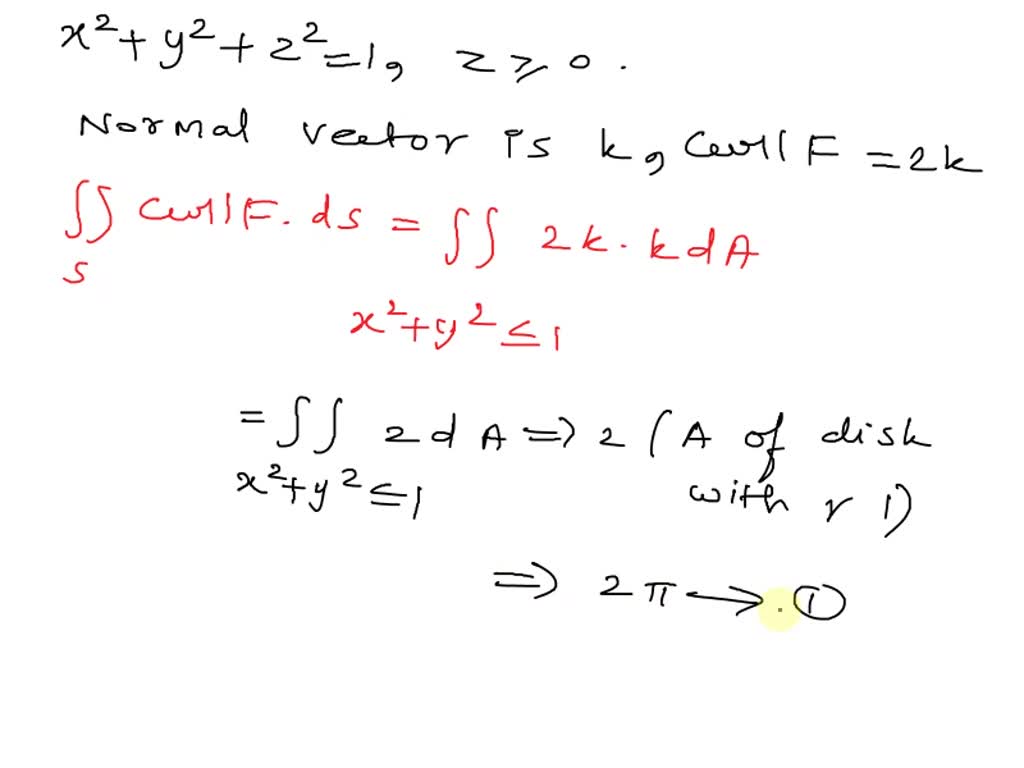 x²+y²+z²=1, z ⩾ 0.
Normal vector is k, Curl F = 2k
∬ Curl F. ds = ∬ 2k. k dA
S
x²+y² ≤ 1
= ∬ 2 d A ⇒ 2 ( A of disk
x²+y² ≤ 1 with r 1)
⇒ 2π → . ①